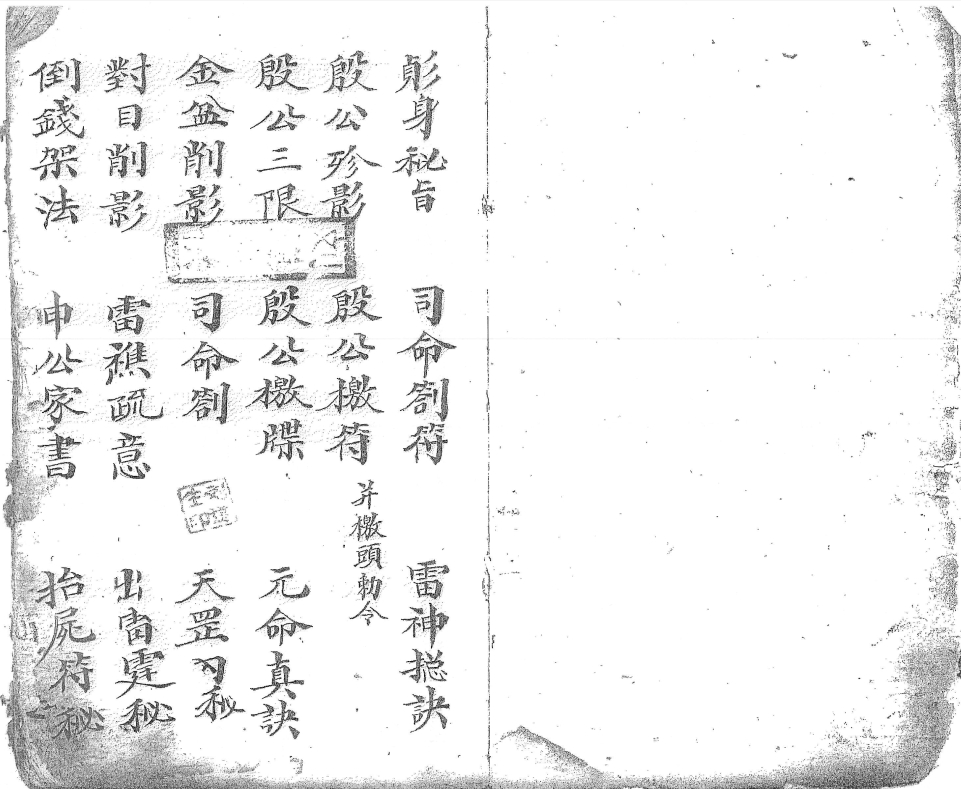 身秘旨
殷公殄影
殷公三限
金盆削影
對目削影
倒錢架法
司命劄符
殷公檄符
并檄頭勅令
殷公檄牒
司命劄
雷醮疏意
申公家書
雷神捴訣
元命真訣
天罡秘
出雷霆秘
抬屍符秘